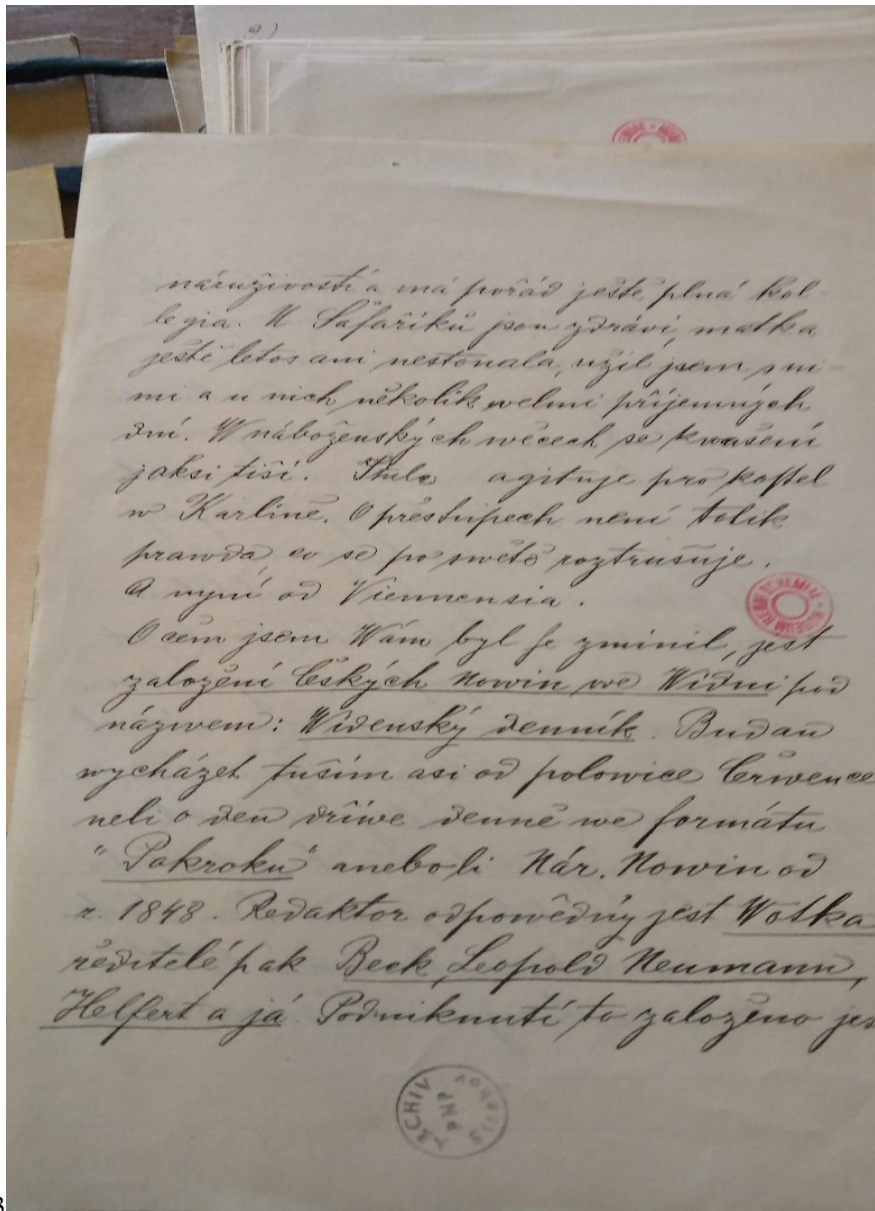 a)
náruživostí a má pořád ještě plná kol-
legia. U Šafaříků jsou zdrávi, matka
ještě letos ani nestonala, užil jsem s ni-
mi a u nich několik welmi příjemných
dní. W náboženských wěcech se kwašení
jaksi tiší. Štulc agituje pro kostel
w Karlíně. O přestupech není tolik
prawda, co se po swětě roztrušuje.
A nyní od Viennensia.
O čem jsem Wám byl se zmínil, jest
založení Českých nowin we Wídni pod
názwem: Wídenský denník. Budau
wycházet tuším asi od polowice Čerwence
neli o den dříwe denně we formátu
"Pokroku" aneboli Nár. Nowin od
r. 1848. Redaktor odpowědný jest Wotka
ředitelé pak Beck, Leopold Neumann,
Helfert a já. Podniknutí to založeno jes
ARCHIV PNP
MUSEUM REGNI BOHEMIAE
3